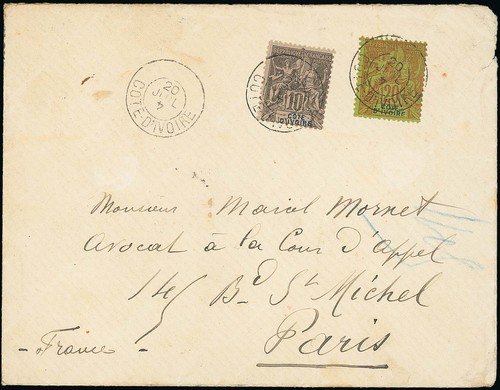 20
JUIL
4
COTE-D'IVOIRE
10
CÔTE
D'IVOIRE
20
CÔTE
D'IVOIRE
Monsieur Marcel Mornet
Avocat à la Cour d'Appel
145 Bd St Michel
Paris
- France -